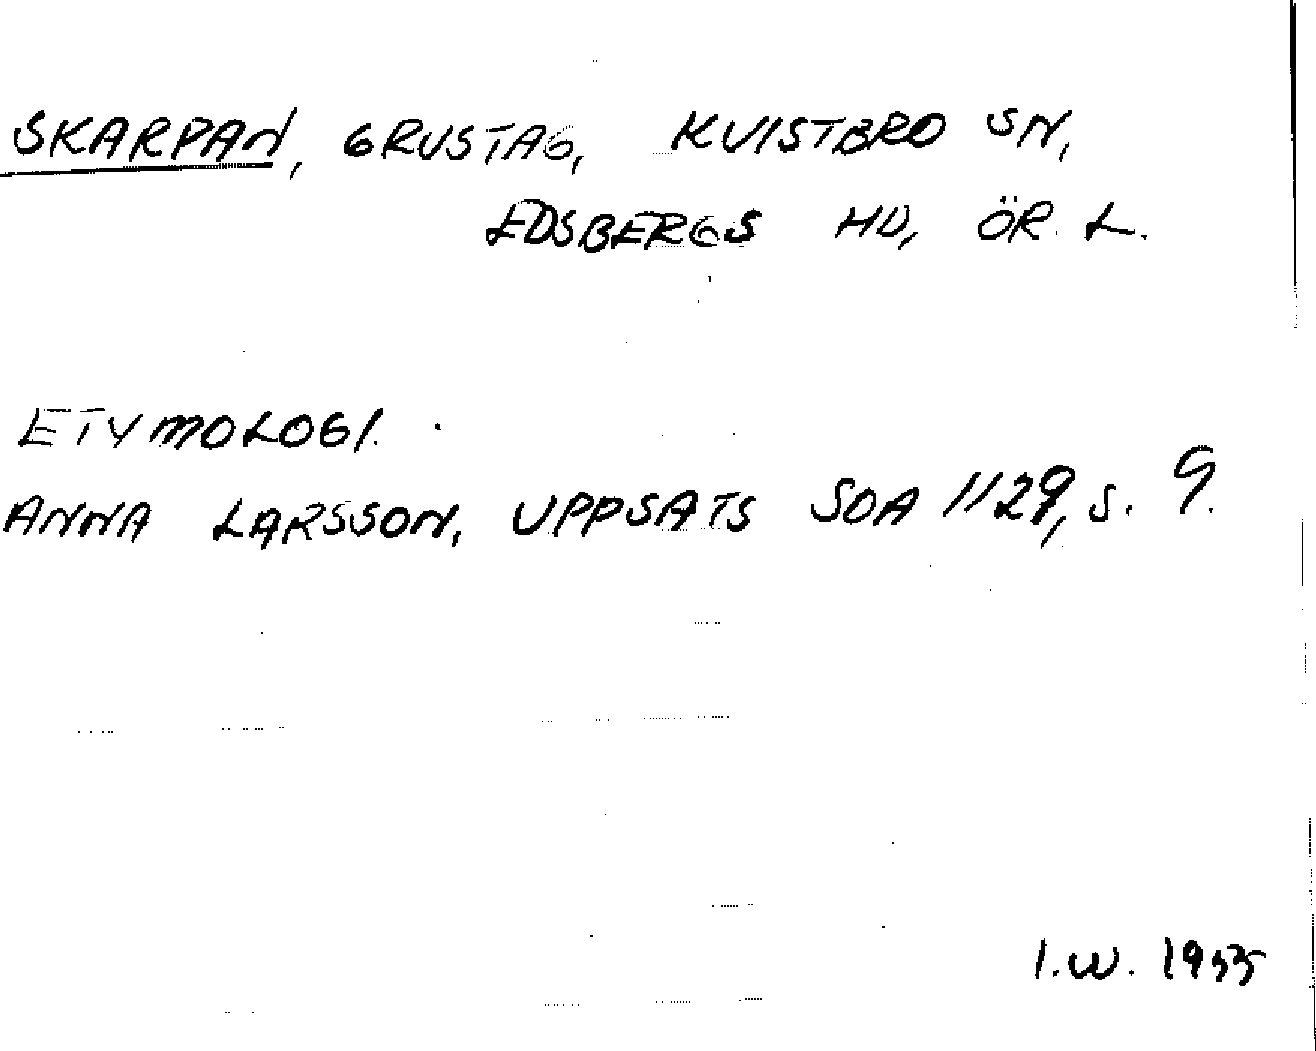 SKARPAN, GRUSTAG, KVISTBRO SN,
EDSBERGS HD, ÖR. L.
ETYMOLOGI.
ANNA LARSSON, UPPSATS SOA 1129, S. 9.
I.W. 1955